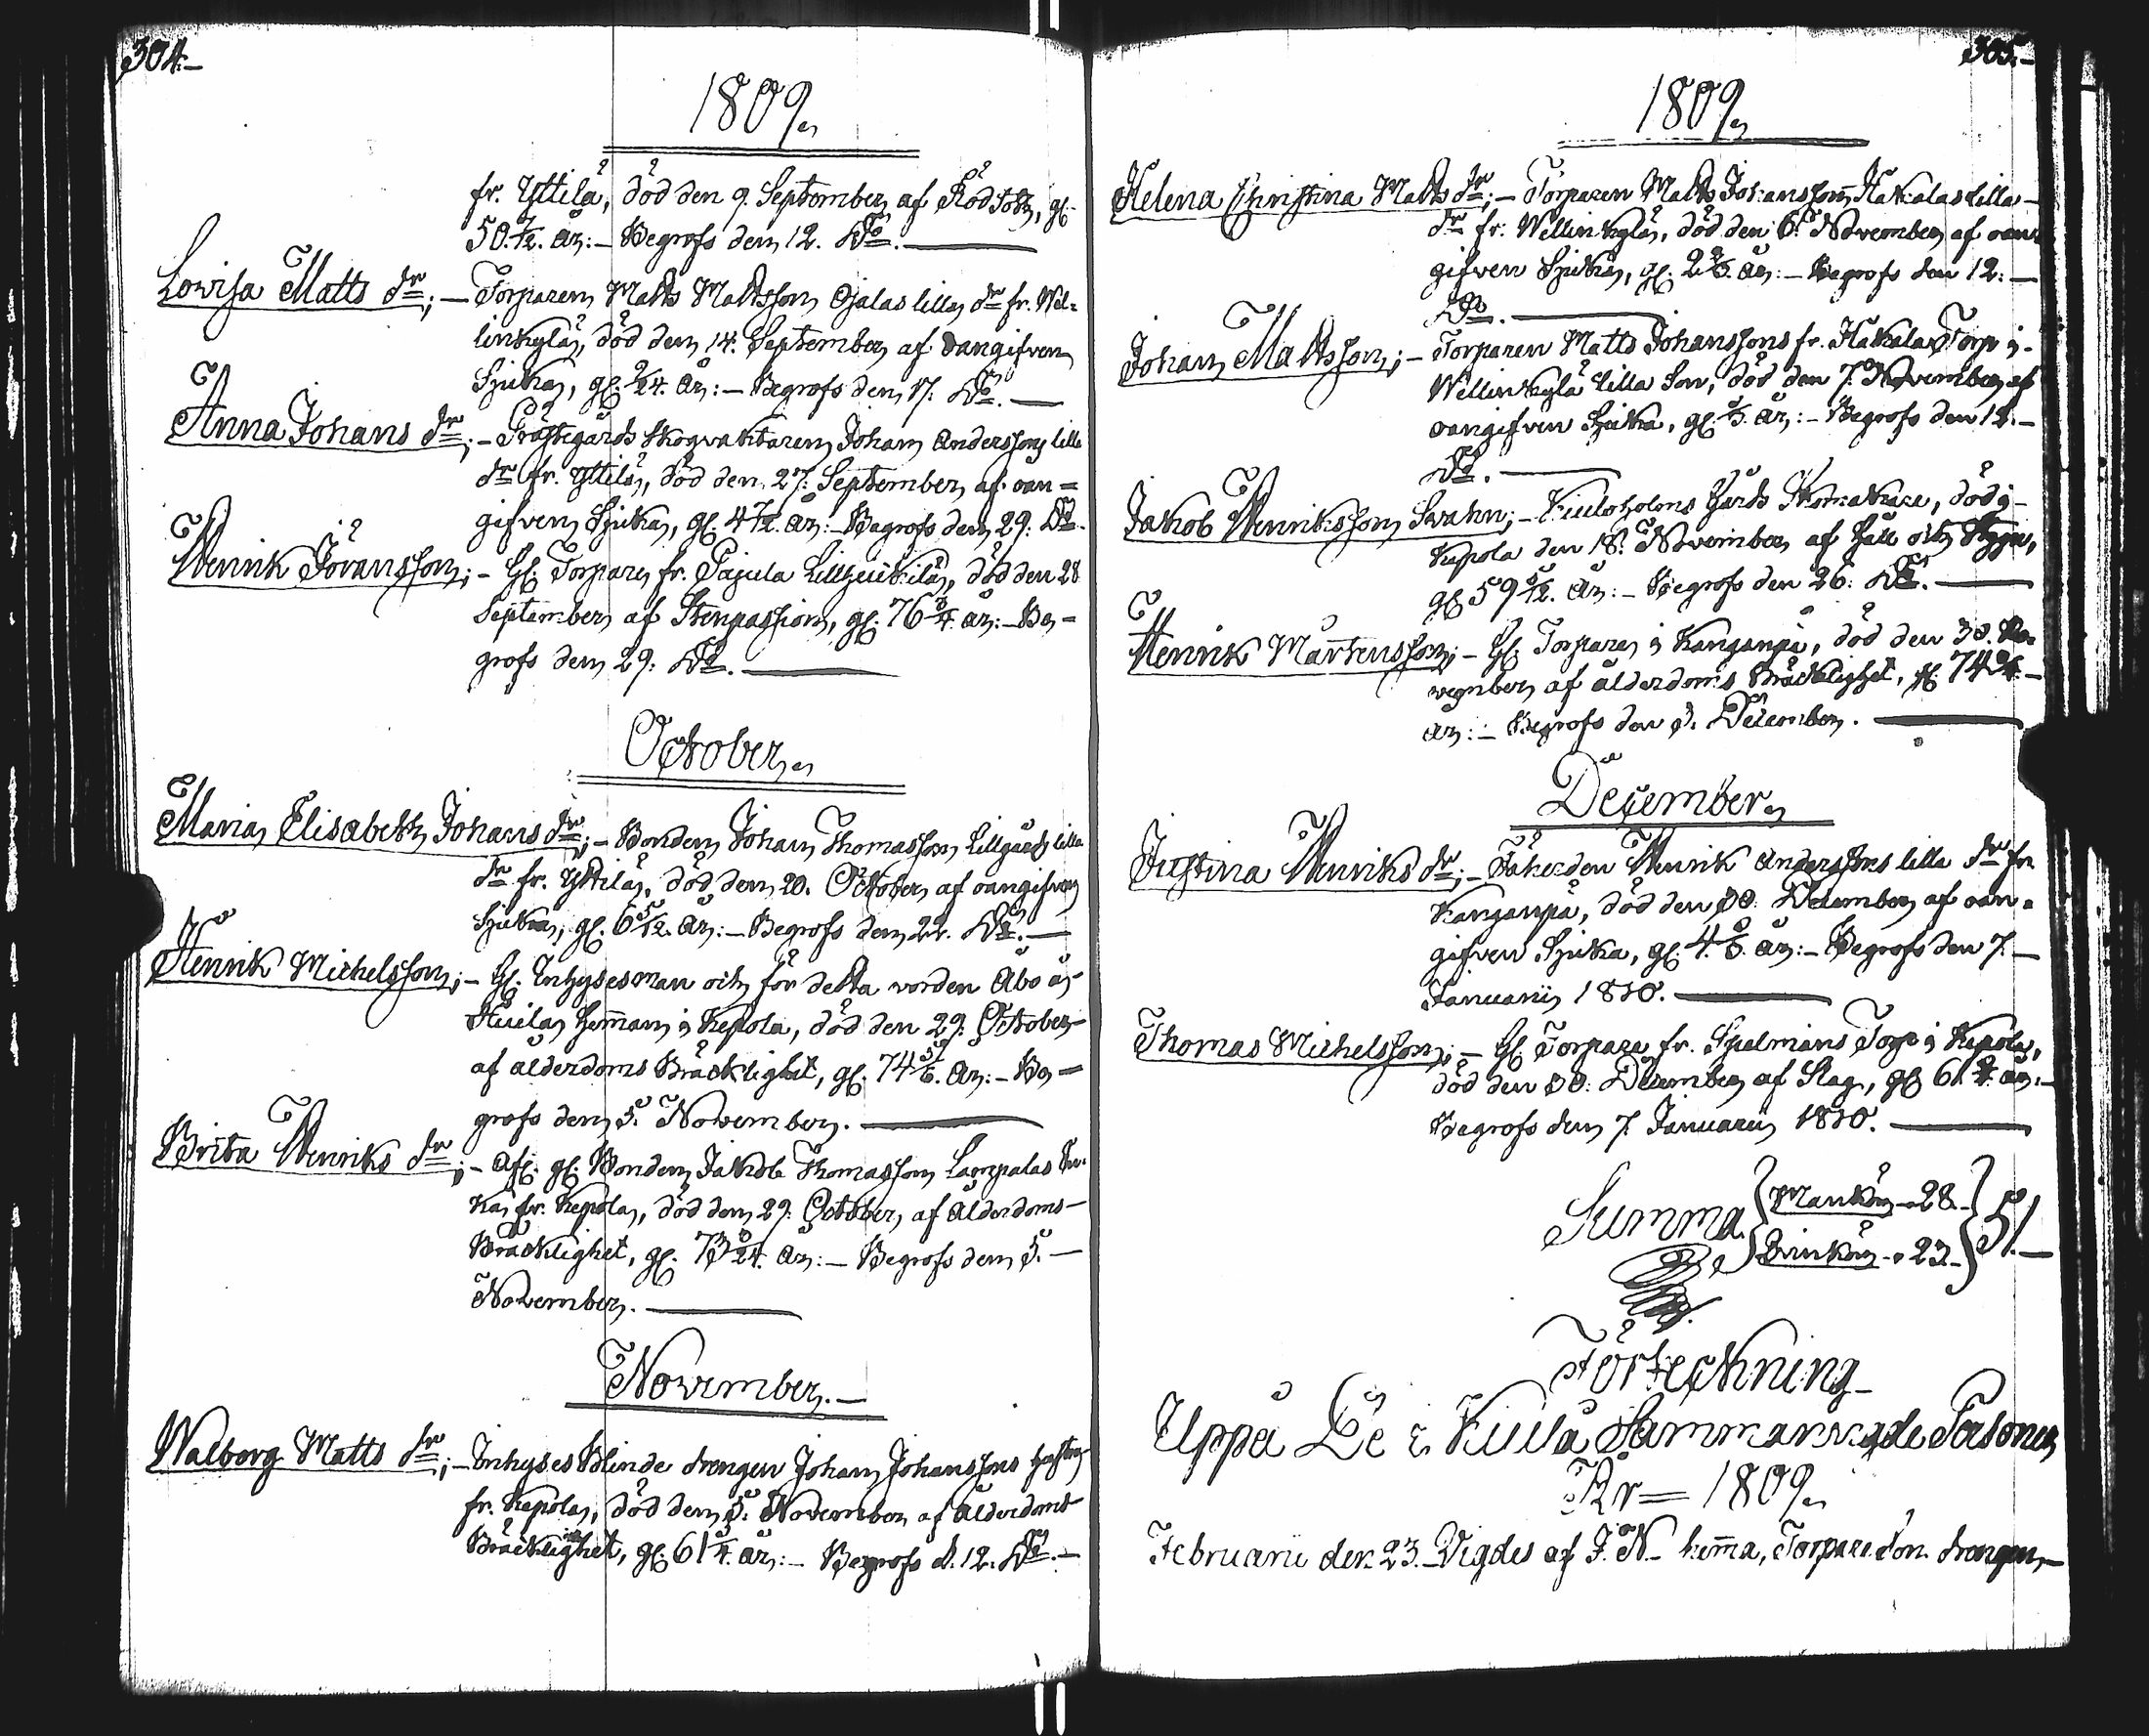 304.
1809.
fr. Yttilä, död den 9. September af Rödsot, gl.
50 1/12. år: – Begrofs den 12. Do.
Lovisa Matts dr; – Torparen Matts Mattsson Ojalas lilla dr fr. Wel-
linkylä, död den 14. September af oangifven
Sjuka, gl. /24. år: – Begrofs den 17. Do. –
Anna Johans dr; – Prästegårds Skogvaktaren Johan Anderssons lilla
dr fr. Yttilä, död den 27. September af oan=
gifven Sjuka, gl. 4 /12. år: – Begrofs den 29. Do.
Henrik Jöransson; – Gl. Torpare fr. Pajula Lillheikkilä, död den 28
September af Stenpassion, gl. 76 3/4. år: – Be=
grofs den 29. Do.
October.
Maria Elisabeth Johans dr; – Bonden Johan Thomasson Lillgårds lilla
dr fr. Yttilä, död den 20. October af oangifven
Sjuka, gl. 6 5/12. år: – Begrofs den 22. Do. –
Henrik Michelsson; – Gl. Inhysesman och för detta vorden Åbo å
Huila Hemman i Kepola, död den 29. October
af ålderdoms Bräcklighet, gl. 74 5/6. år: – Be=
grofs den 5. November.
Brita Henriks dr; – Afl. gl. Bonden Jakob Thomasson Lampalas En-
ka fr. Kepola, död den 29. October, af Ålderdoms
Bräcklighet, gl. 73 /24. år: – Begrofs den 5. –
November.
November. –
Walborg Matts dr; – Inhyses Blinde drengen Johan Johanssons hustru
fr. Kepola, död den 5. November af Ålderdoms
Bräcklighet, gl. 61 1/4. år: – Begrofs d. 12. Do. –
305.
1809.
Helena Christina Matts dr; – Torparen Matts Johansson Kakalas lilla
dr fr. Wellinkylä, död den 6. November af oan-
gifven Sjuka, gl. 2 2/3. år: – Begrofs den 12. –
Do.
Johan Mattsson; – Torparen Matts Johanssons fr. Kakalas Torp i
Wellinkylä lilla Son, död den 7. November af
oangifven Sjuka, gl. år: – Begrofs den 12. –
Do.
Jakob Henriksson Svahn; – Kiuloholms Gårds Skomakare, död i
Kepola den 18. November af Håll och Styng,
gl. 59 5/12. år: – Begrofs den 26. Do.
Henrik Mårtensson; – Gl. Torpare i Kanganpä, död den 30. No-
vember af ålderdoms Bräcklighet, gl. 74 3/4. –
år: – Begrofs den 3. December.
December
Justina Henriks dr; – Inherden Henrik Anderssons lilla dr fr.
Kanganpä, död den 30. December af oan-
gifven Sjuka, gl. 4 år: – Begrofs den 7. –
Januarii 1810.
Thomas Michelsson; – Gl. Torpare fr. Spelmans Torp i Kepola,
död den 30. December af Slag, gl. 61 år: –
Begrofs den 7. Januarii 1810.
Summa { Mankön – 28.
Qvinkön – 23. } 51. –
Förteckning
Uppå De i Kiula Sammanvigde Personer
År = 1809.
Februarii den 23. Vigdes af J. N. hemma, Torpare Son drengen